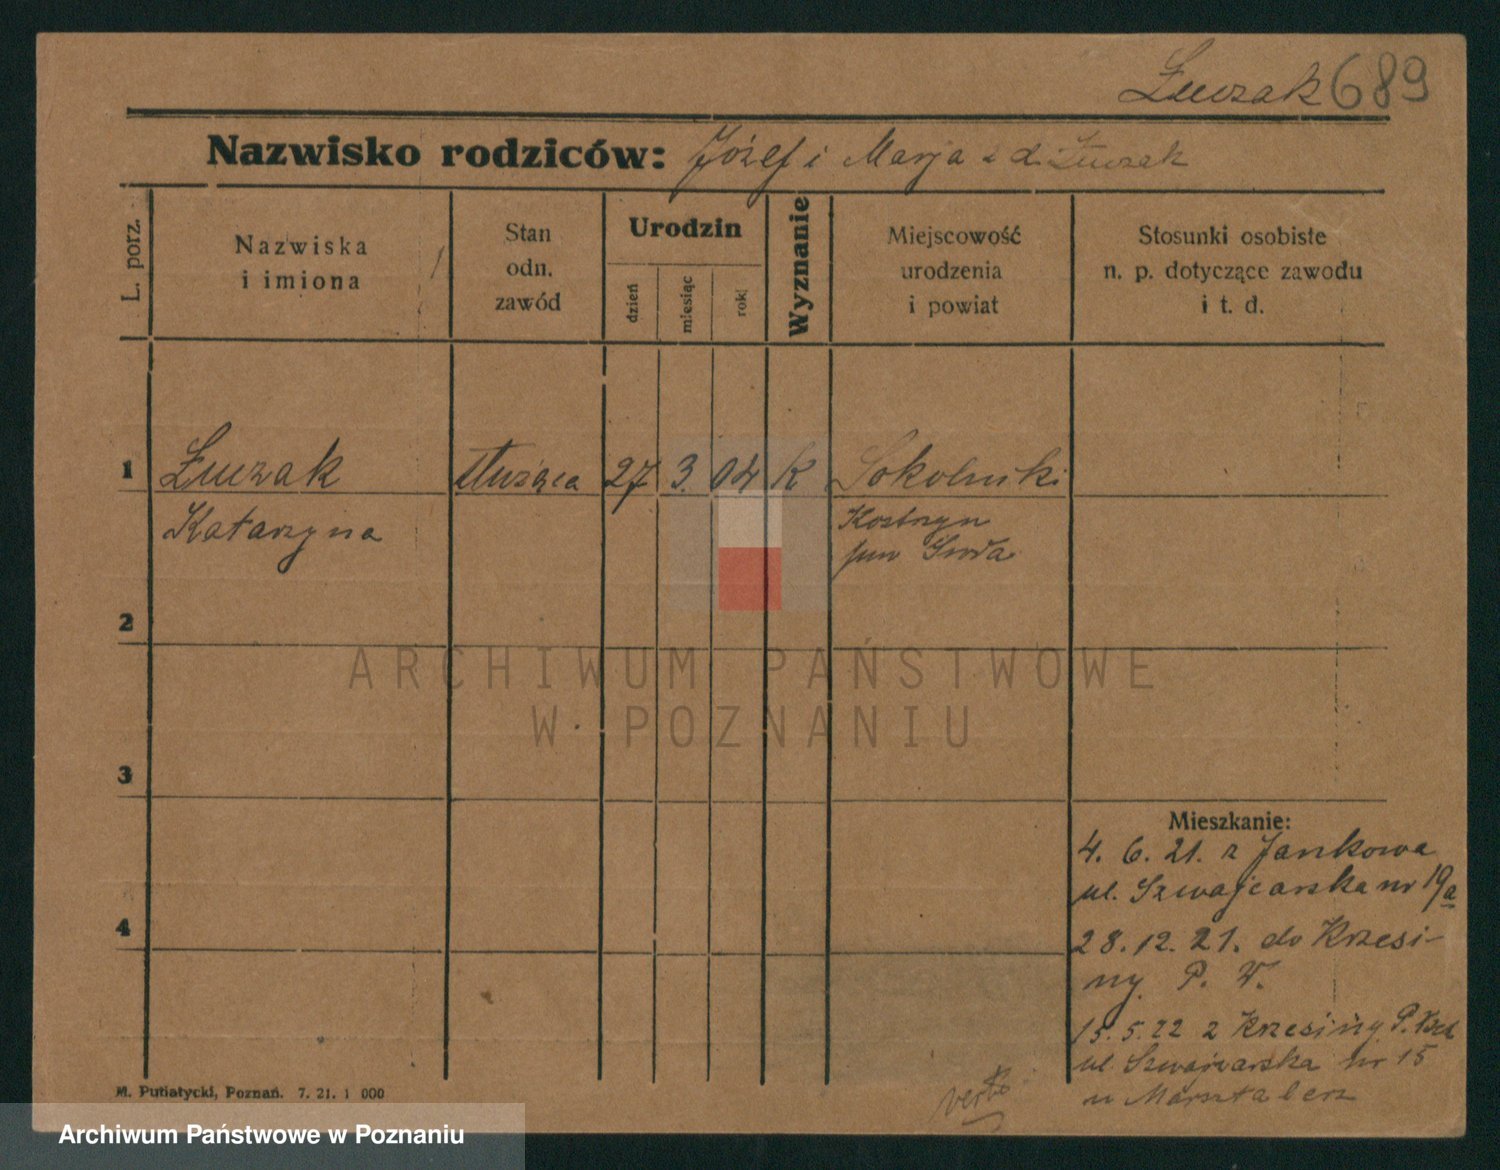 Łuczak 689
Nazwisko rodziców: Józef i Marja z d. Łuczak
L. porz.
Nazwiska
i imiona
Stan
odn.
zawód
Urodzin
dzień
miesiąc
rok
Wyznanie
Miejscowość
urodzenia
i powiat
Stosunki osobiste
n. p. dotyczące zawodu
i t. d.
1 Łuczak służąca 27 3. 04 K Sokolniki
Katarzyna Kostrzyn
pow Środa
2
ARCHIWUM PAŃSTWOWE
W POZNANIU
3
Mieszkanie:
4. 6. 21. z Jankowa
ul. Szwajcarska nr 19a
4
28. 12. 21. do Krzesi-
ny P. W.
15. 5. 22 z Krzesiny P.
ul Szwajcarska nr 15
u Marsztalerz
M. Putiatycki, Poznań. 7. 21. 1 000
Archiwum Państwowe w Poznaniu